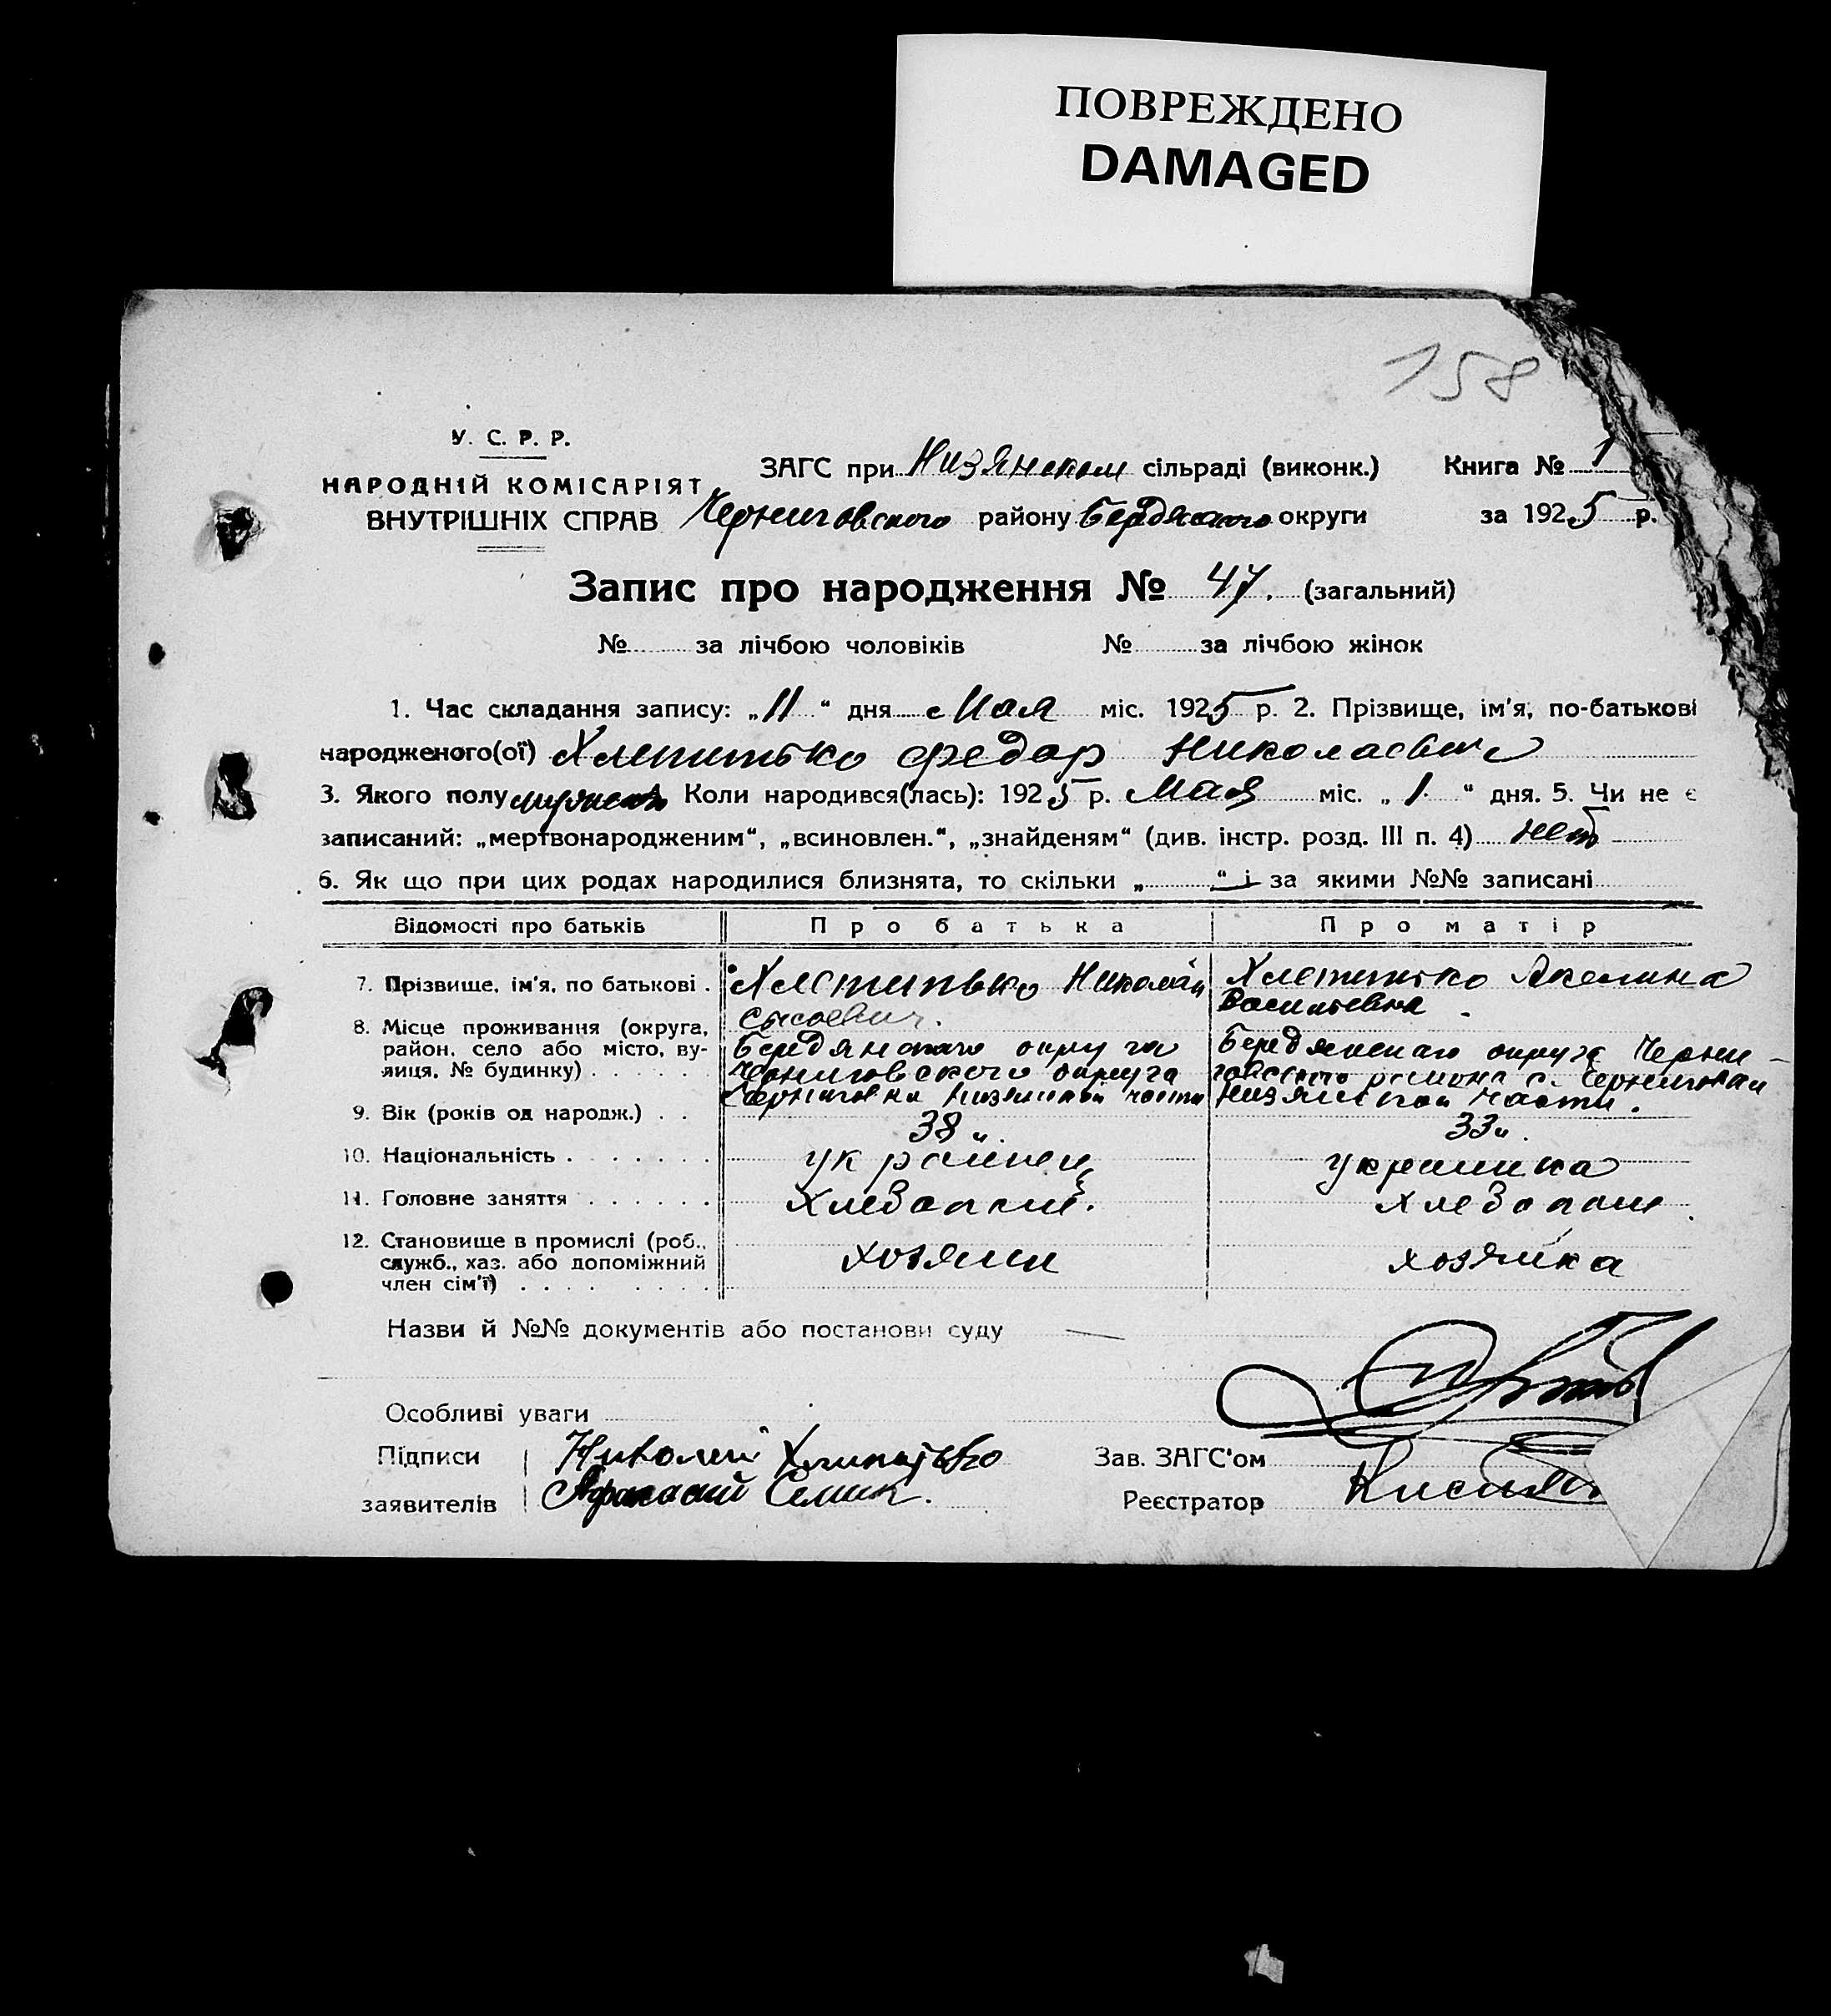 ПОВРЕЖДЕНО
DAMAGED
158
У. С. Р. Р.
НАРОДНІЙ КОМІСАРІЯТ
ВНУТРІШНІХ СПРАВ
ЗАГС при Низянском сільраді (виконк.) Книга № 1
Черниговского району Бердянского округи за 1925 р.
Запис про народження № 47. (загальний)
№ за лічбою чоловіків № за лічбою жінок
1. Час складання запису: „11“ дня Мая міс. 1925 р. 2. Прізвище, ім'я, по-батькові
народженого(ої) Федор Николаевич
3. Якого полу Коли народився(лась): 1925 р. Мая міс. „1“ дня. 5. Чи не є
записаний: „мертвонародженим“, „всиновлен.“, „знайденям“ (див. інстр. розд. III п. 4) нет
6. Як що при цих родах народилися близнята, то скільки „ “ і за якими №№ записані
Відомості про батьків Про батька Про матір
7. Прізвище, ім'я, по батькові . Николай
Сысоевич.
Акелина
Васильевна.
8. Місце проживання (округа,
район, село або місто, ву-
лиця, № будинку) . . . . . .
Бердянского округа
Черниговского округа
Черниговка Низянской части
Бердянского округа Черни-
говского района с. Черниговки
Низянской части.
9. Вік (років од народж.) . . 38 33
10. Національність . . . . . . . украинец украинка
11. Головне заняття . . . . . . хлебопаш. хлебопаш.
12. Становище в промислі (роб.,
служб., хаз. або допоміжний
член сім'ї) . . . . . . . .
хозяин хозяйка
Назви й №№ документів або постанови суду —
Особливі уваги
Підписи Николай
заявителів Афанасий Семик.
Зав. ЗАГС'ом
Реєстратор